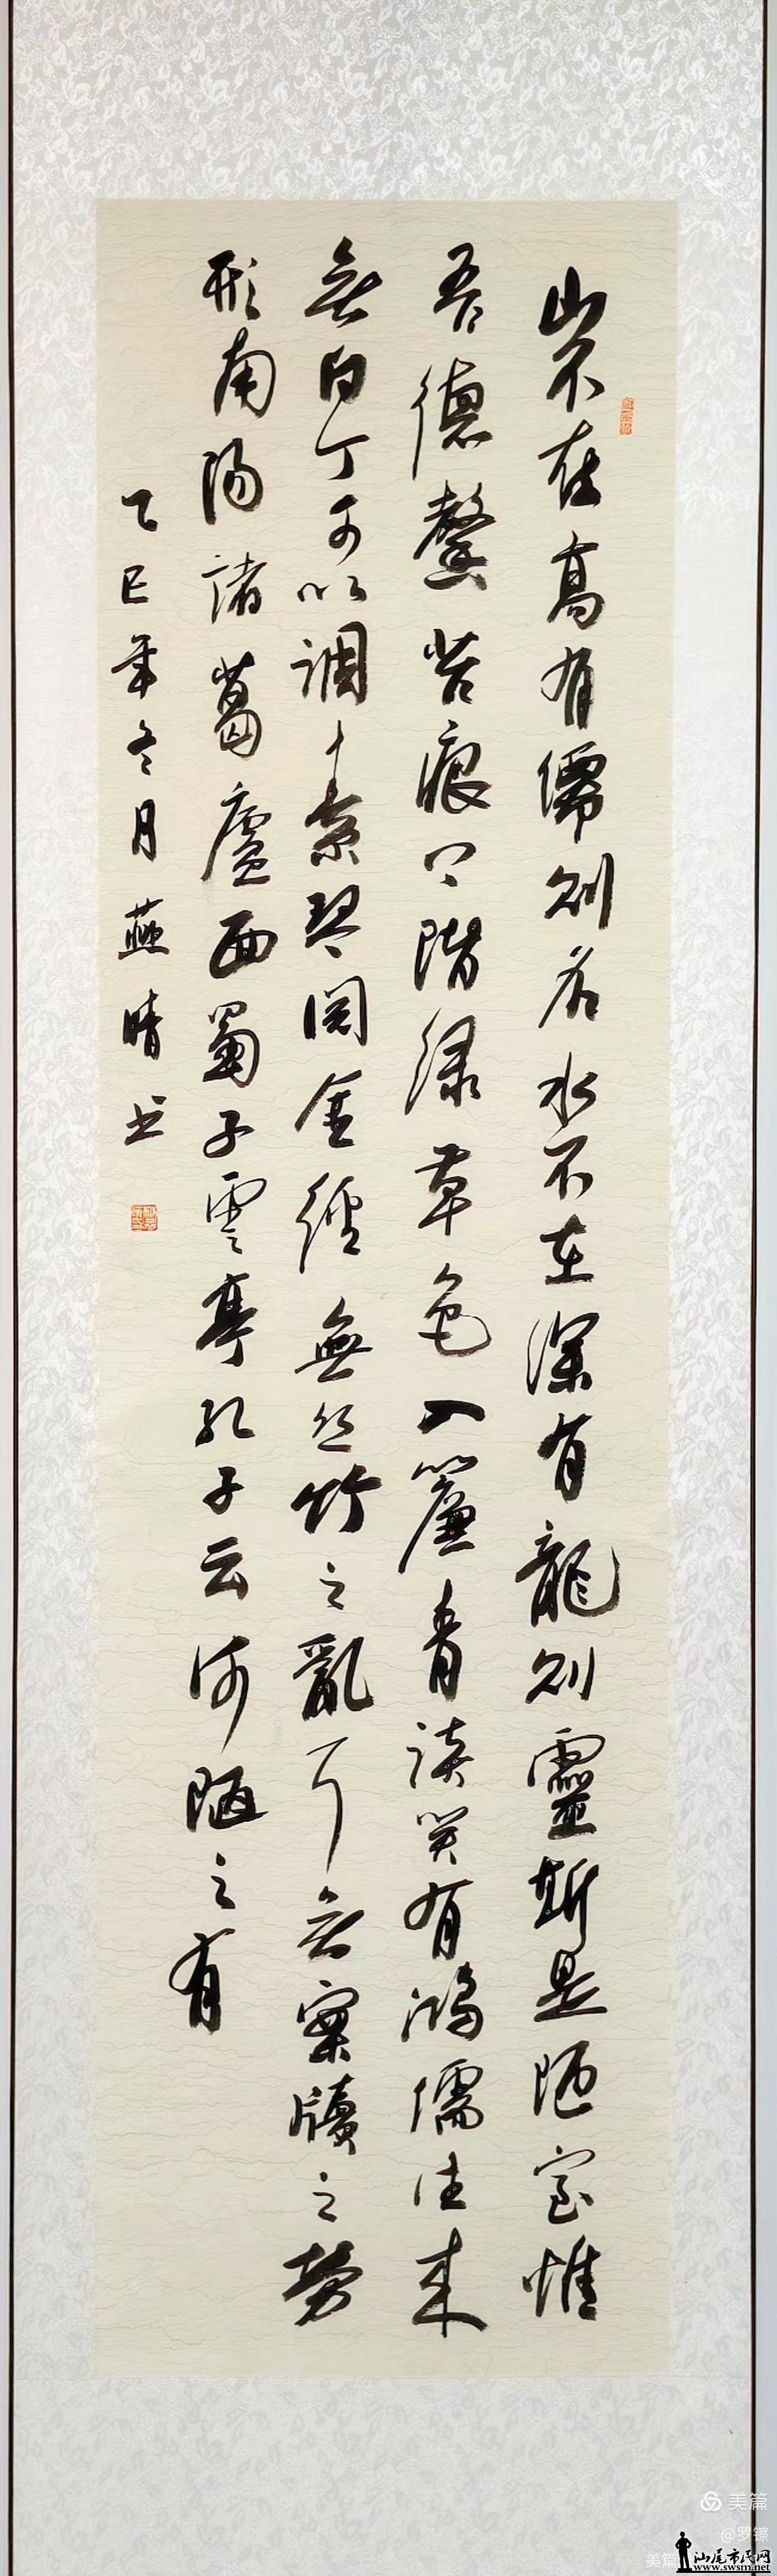 山不在高有則名水不在深有龍則靈斯是陋室惟
吾德馨苔痕上階緑草色入簾青談笑有鴻儒往来
無白丁可以調素琴閲金經無絲竹之亂耳無案牘之勞
形南陽諸葛廬西蜀子雲亭孔子云何陋之有
乙巳年冬月燕晴书
美篇
@罗镖
美篇
汕尾市民网
www.swsm.net